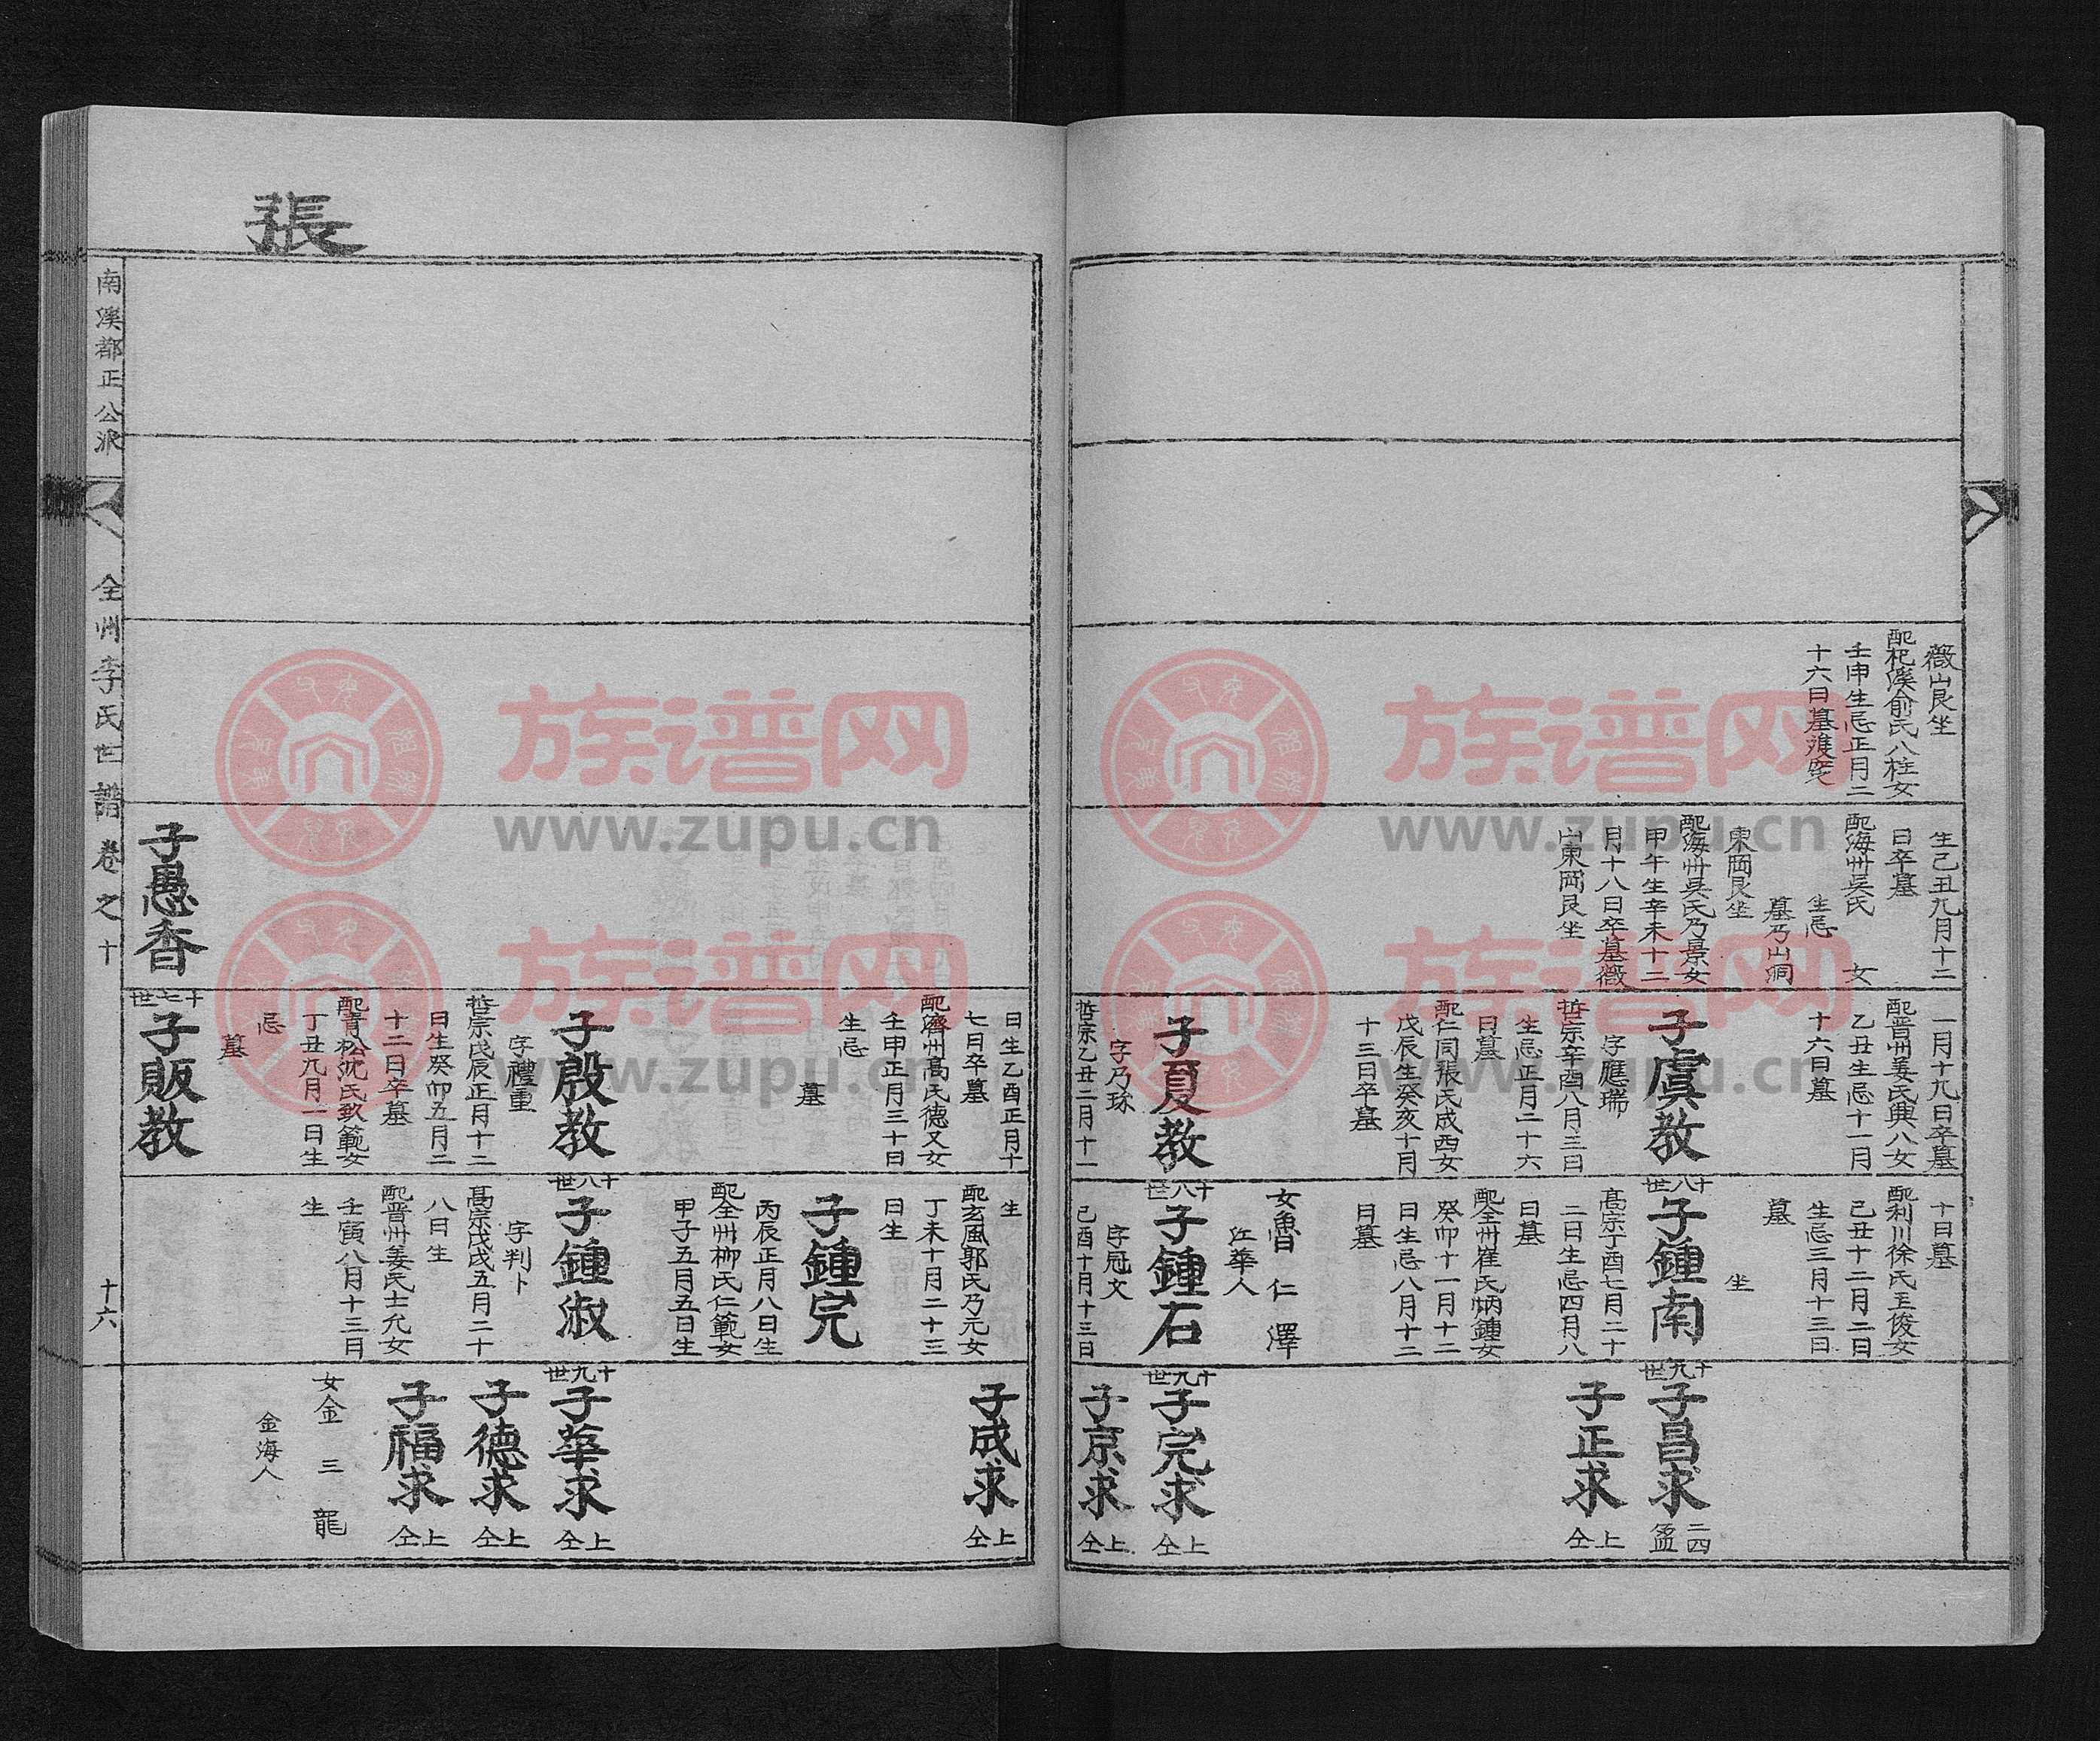 薇山艮坐
配杞溪俞氏八柱女
壬申生忌正月二
十六日墓
生己丑九月十二
日卒墓
配海州吳氏 女
生忌
墓乃山洞
東岡艮坐
配海州吳氏乃景女
甲午生辛未十二
月十八日卒墓薇
山東岡艮坐
一月十九日卒墓
配晋州姜氏興八女
乙丑生忌十一月
十六日墓
子虞教
字應瑞
哲宗辛酉八月三日
生忌正月二十六
日墓
配仁同張氏成西女
戊辰生癸亥十月
十三日卒墓
子夏教
字乃琭
哲宗乙丑二月十一
十日墓
配利川徐氏王俊女
己丑十二月二日
生忌三月十三日
墓
坐
十八世
子鍾南
高宗丁酉七月二十
二日生忌四月八
日墓
配全州崔氏炳鍾女
癸卯十一月十二
日生忌八月十二
日墓
女魯仁澤
江華人
十八世
子鍾石
字冠文
己酉十月十三日
十九世
子昌求
二四
孟
子正求
上仝
十九世
子完求
上仝
子京求
上仝
張
日生乙酉正月十
七日卒墓
配濟州高氏德又女
壬申正月三十日
生忌
墓
子殷教
字禮重
哲宗戊辰正月十二
日生癸卯五月二
十二日卒墓
配青松沈氏致範女
丁丑九月一日生
忌
墓
子愚香
十七世
子販教
生
配玄風郭氏乃元女
丁未十月二十三
日生
子鍾完
丙辰正月八日生
配全州柳氏仁範女
甲子五月五日生
十八世
子鍾淑
字判卜
高宗戊戌五月二十
八日生
配晋州姜氏士允女
壬寅八月十三日
生
子成求
上仝
十九世
子華求
上仝
子德求
上仝
子福求
上仝
女金三龍
金海人
南溪都正公派
全州李氏世譜 卷之十
十六
族谱网
www.zupu.cn
族谱网
www.zupu.cn
族谱网
www.zupu.cn
族谱网
www.zupu.cn